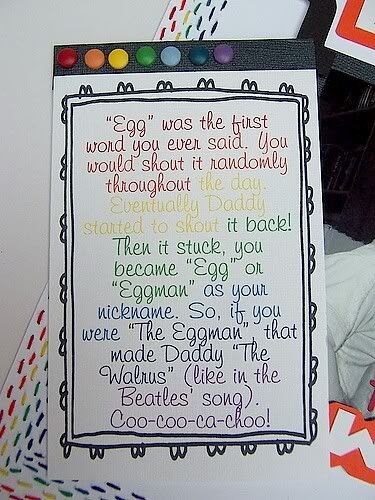 “Egg” was the first
word you ever said. You
would shout it randomly
throughout the day.
Eventually Daddy
started to shout it back!
Then it stuck, you
became “Egg” or
“Eggman” as your
nickname. So, if you
were “The Eggman”, that
made Daddy “The
Walrus” (like in the
Beatles’ song).
Coo-coo-ca-choo!